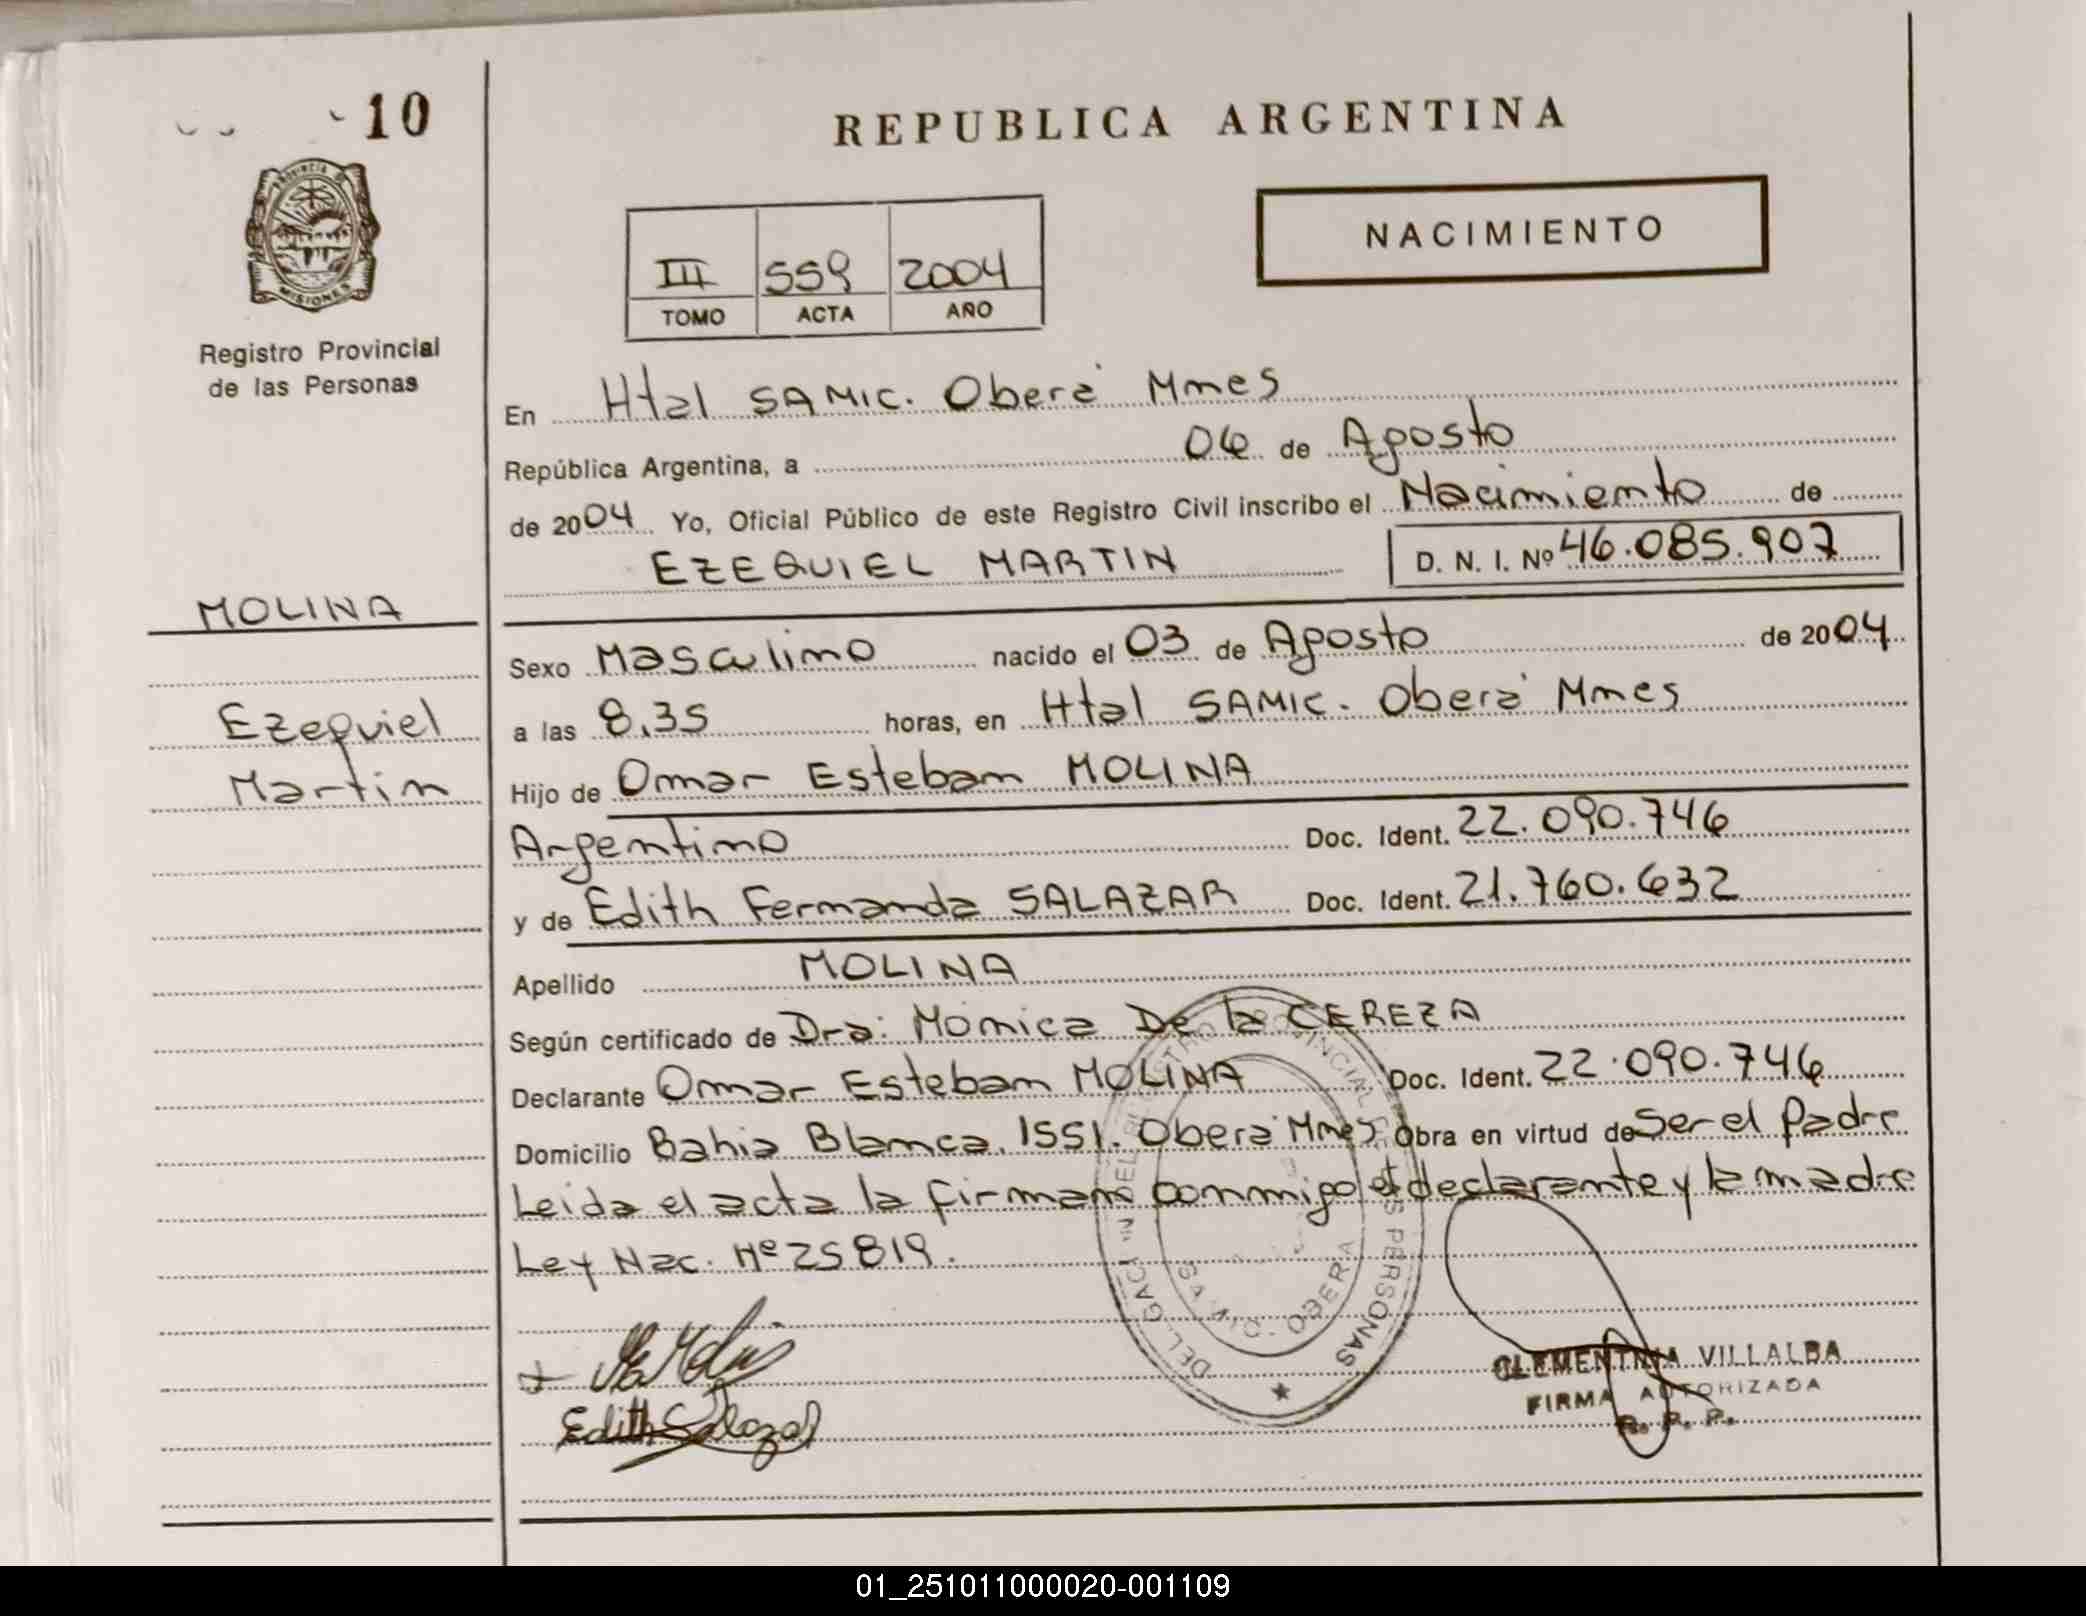 10
REPUBLICA ARGENTINA
PROVINCIA DE
MISIONES
Registro Provincial
de las Personas
NACIMIENTO
III 559 2004
TOMO ACTA AÑO
En Htal SAMIC. Oberá Mnes
República Argentina, a 06 de Agosto
de 2004 Yo, Oficial Público de este Registro Civil inscribo el Nacimiento de
EZEQUIEL MARTIN D. N. I. Nº 46.085.907
MOLINA
Ezequiel
Martin
Sexo Masculino nacido el 03 de Agosto de 2004
a las 8,35 horas, en Htal SAMIC. Oberá Mnes
Hijo de Omar Esteban MOLINA
Argentino Doc. Ident. 22.090.746
y de Edith Fernanda SALAZAR Doc. Ident. 21.760.632
Apellido MOLINA
Según certificado de Dra: Mónica De la CEREZA
Declarante Omar Esteban MOLINA Doc. Ident. 22.090.746
Domicilio Bahia Blanca. 1551. Oberá Mnes Obra en virtud de Ser el Padre
Leida el acta la firman conmigo el declarante y la madre
Ley Nac. Nº 25819.
PERSONAS
OBERA
Edith Salazar
CLEMENTINA VILLALBA
FIRMA AUTORIZADA
R. P. P.
01_251011000020-001109